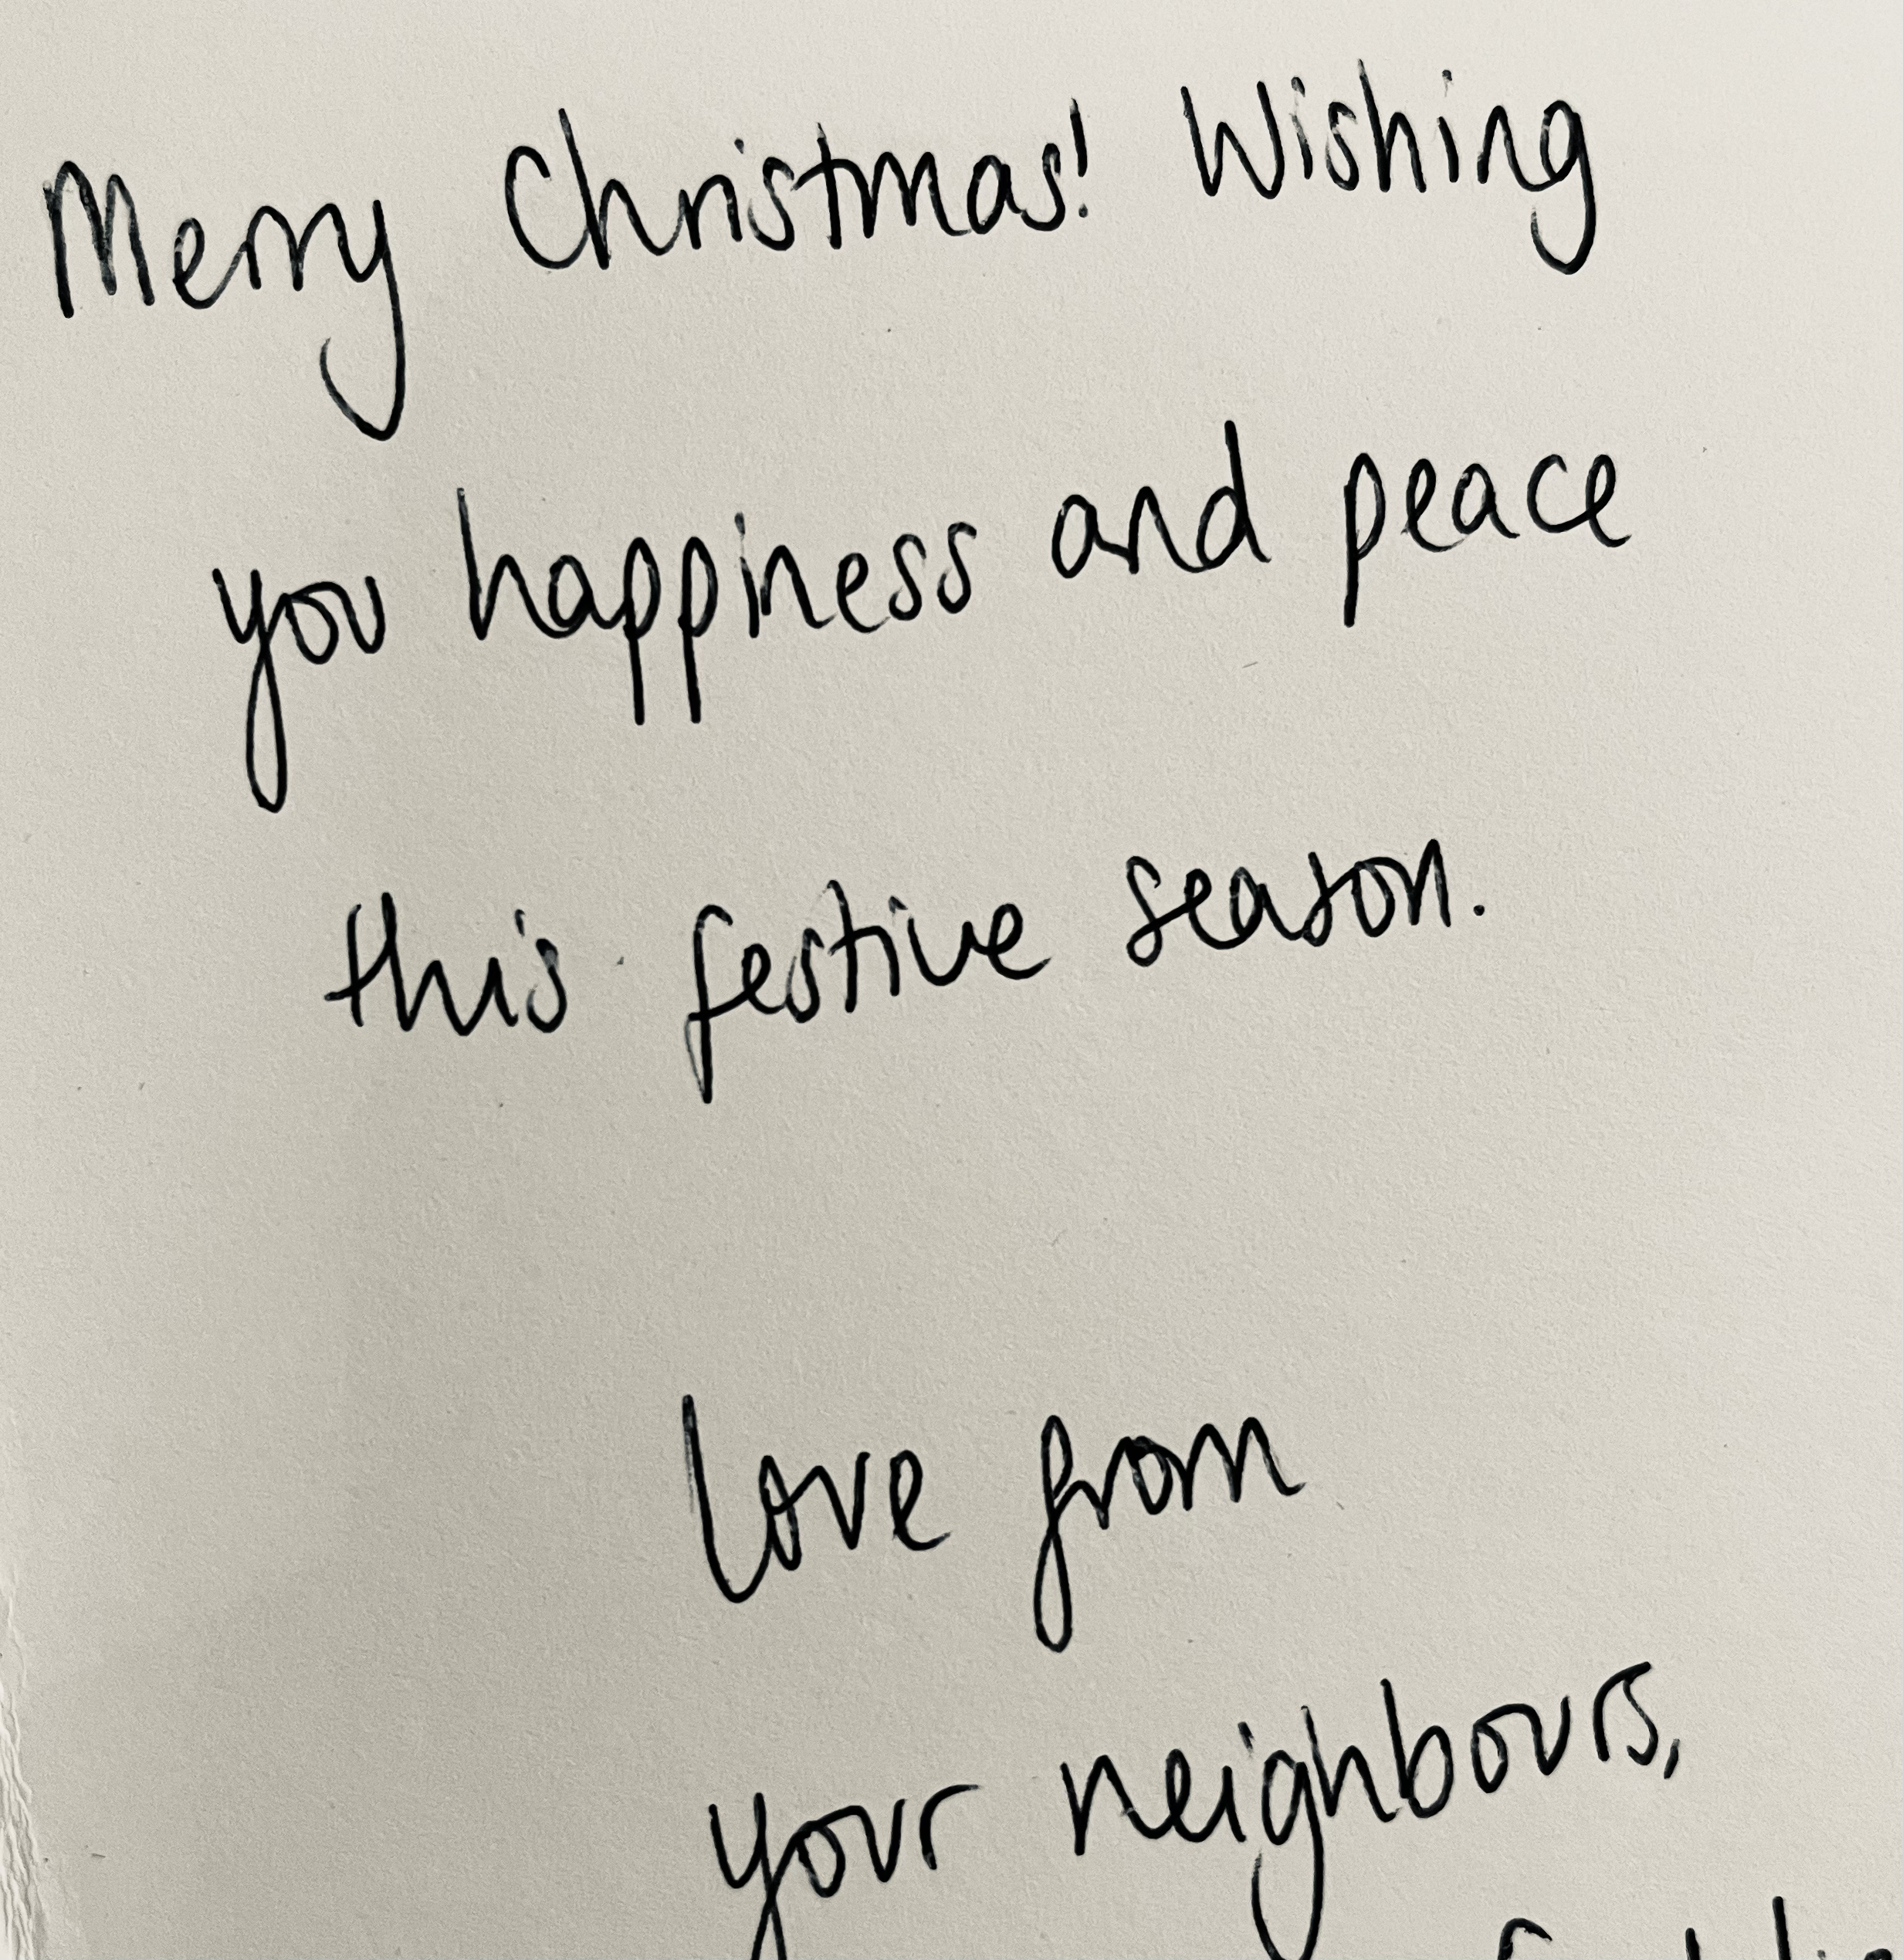 Merry Christmas! Wishing
you happiness and peace
this festive season.
Love from
your neighbours,